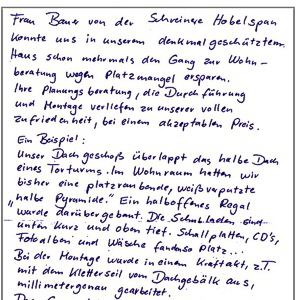 Frau Bauer von der Schreinerei Hobelspan
konnte uns in unserem denkmalgeschützten
Haus schon mehrmals den Gang zur Wohn-
beratung wegen Platzmangel ersparen.
Ihre Planungsberatung, die Durchführung
und Montage verliefen zu unserer vollen
Zufriedenheit, bei einem akzeptablen Preis.
Ein Beispiel:
Unser Dachgeschoß überlappt das halbe Dach
eines Torturms. Im Wohnraum hatten wir
bisher eine platzraubende, weißverputzte
"halbe Pyramide". Ein halboffenes Regal
wurde darübergebaut. Die Schubladen sind
unten kurz und oben tief. Schallplatten, CD's,
Fotoalben und Wäsche fanden so Platz...
Bei der Montage wurde in einem Kraftakt, z.T.
mit dem Kletterseil vom Dachgebälk aus,
millimetergenau gearbeitet.